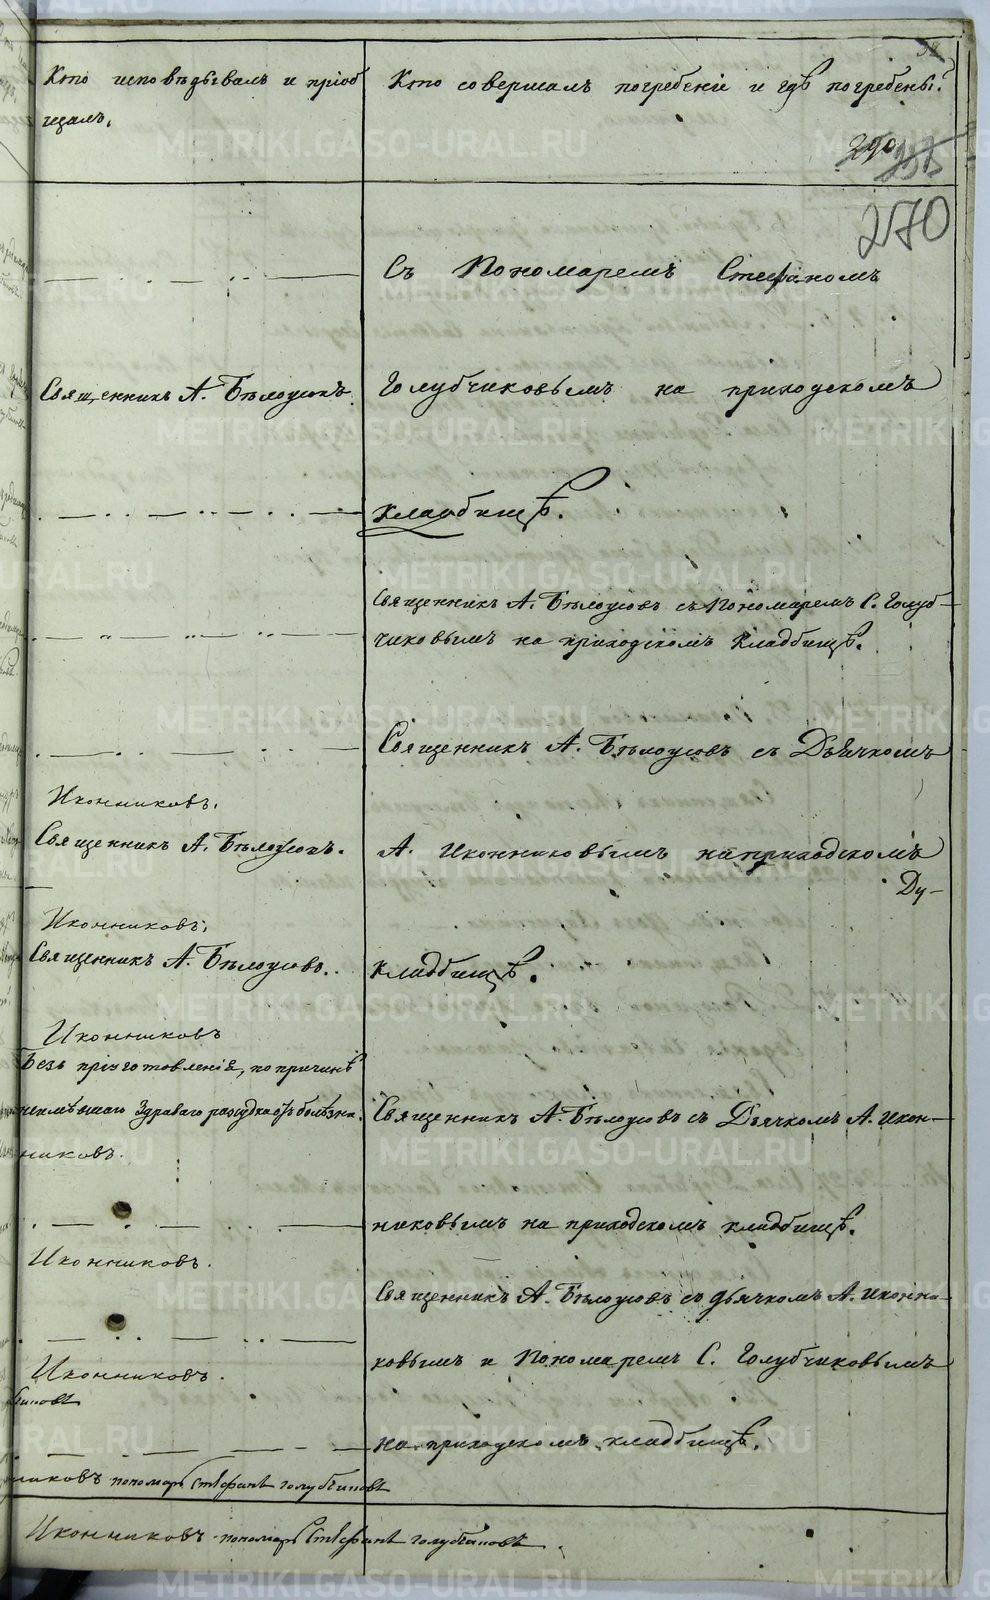 Кто исповѣдывалъ и пріоб
щалъ.
Кто совершалъ погребеніе и гдѣ погребены?
290
270
Съ Пономаремъ Стефаномъ
Священникъ А. Бѣлоусовъ.
Голубчиковымъ на приходскомъ
кладбищѣ.
Священникъ А. Бѣлоусовъ съ Пономаремъ С. Голуб-
чиковымъ на приходскомъ кладбищѣ.
Священникъ А. Бѣлоусовъ съ Дьячкомъ
Иконниковъ.
Священникъ А. Бѣлоусовъ.
А. Иконниковымъ на приходскомъ
Ду-
Иконниковъ.
Священникъ А. Бѣлоусовъ.
кладбищѣ.
Иконниковъ
Безъ пріуготовленія, по причинѣ
неимѣвшаго здраваго разсудка отъ болѣзни.
Священникъ А. Бѣлоусовъ съ Дьячкомъ А. Икон-
никовъ.
никовымъ на приходскомъ кладбищѣ.
Иконниковъ.
Священникъ А. Бѣлоусовъ съ дьячкомъ А. Иконни-
ковымъ и Пономаремъ С. Голубчиковымъ
Иконниковъ.
на приходскомъ кладбищѣ.
никовъ пономарь Стефанъ голубчиковъ
Иконниковъ пономарь Стефанъ голубчиковъ
METRIKI.GASO-URAL.RU